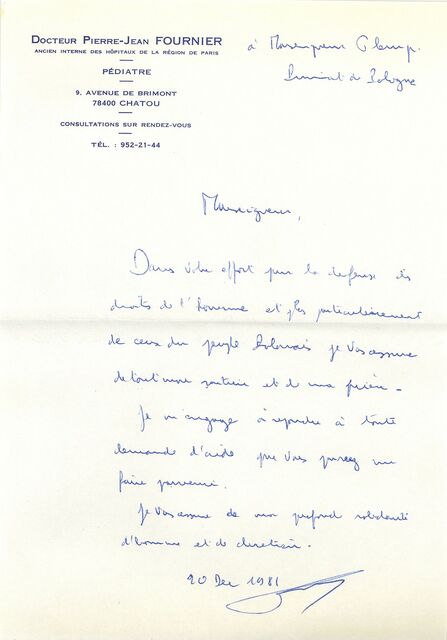 DOCTEUR PIERRE-JEAN FOURNIER
ANCIEN INTERNE DES HÔPITAUX DE LA RÉGION DE PARIS
PÉDIATRE
9, AVENUE DE BRIMONT
78400 CHATOU
CONSULTATIONS SUR RENDEZ-VOUS
TÉL. : 952-21-44
à Monseigneur Glemp.
Primat de Pologne
Monseigneur,
Dans votre effort pour la défense des
droits de l'homme et plus particulièrement
de ceux du peuple Polonais je vous assure
de tout mon soutien et de ma prière -
Je m'engage à répondre à toute
demande d'aide que vous pourrez me
faire parvenir.
Je vous assure de mon profond solidarité
d'homme et de chrétien.
20 Dec 1981